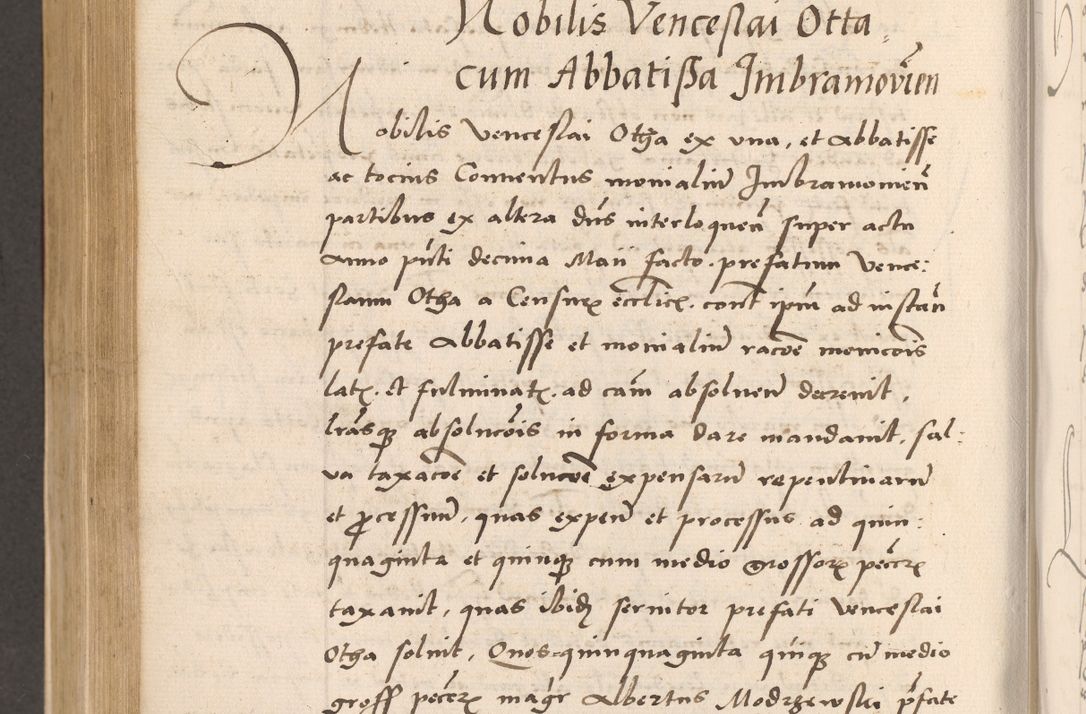 Nobilis Venceslai Otta
cum Abbatissa Imbramovien
Nobilis Venceslai Otha ex una, et Abbatisse
ac tocius Conventus monialiu Imbramovien
partibus ex altera dns interloquen super actu
anno pnti decima Maii facto. prefatum Vence:
slaum Otha a Censure ecclice. cont ipm ad instan
prefate Abbatisse et monialiu racoe monicois
late. et fulminate. ad cam absolven decrevit,
lrasq absolucois in forma dare mandavit, sal:
va taxacoe et solucoe expensaru repentinaru
et pcessuu, quas expen et processus ad quin:
quaginta et quinq cum medio grossorx pecrx
taxavit, quas ibid servitor prefati Venceslai
Otha solvit, Quos quinquaginta quinq cu medio
gross pecrx magr Albertus Modrzewski pfate